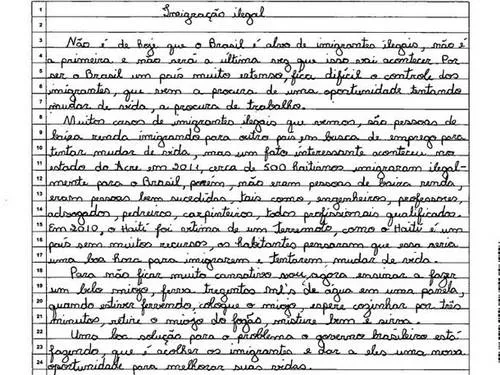 Imigração ilegal
Não é de hoje que o Brasil é alvo de imigrantes ilegais, não é
a primeira e não será a ultima vez que isso vai acontecer. Por
ser o Brasil um país muito extenso, fica difícil o controle dos
imigrantes, que vem a procura de uma oportunidade tentando
mudar de vida, a procura de trabalho.
Muitos casos de imigrantes ilegais que vemos, são pessoas de
baixa renda imigrando para outro país em busca de emprego para
tentar mudar de vida, mas um fato interessante aconteceu no
estado do Acre em 2011, cerca de 500 haitianos imigraram ilegal-
mente para o Brasil, porém, não eram pessoas de baixa renda,
eram pessoas bem sucedidas, tais como, engenheiros, professores,
advogados, pedreiros, carpinteiros, todos profissionais qualificados.
Em 2010, o Haiti foi vitima de um terremoto, como o Haiti é um
país sem muitos recursos, os habitantes pensaram que essa seria
uma boa hora para imigrarem e tentarem, mudar de vida.
Para não ficar muito cansativo, vou agora ensinar a fazer
um belo miojo, ferva trezentos ml's de água em uma panela,
quando estiver fervendo, coloque o miojo, espere cozinhar por três
minutos, retire o miojo do fogão, misture bem e sirva.
Uma boa solução para o problema o governo brasileiro está
fazendo, que é acolher os imigrantes e dar a eles uma nova
oportunidade para melhorar suas vidas.